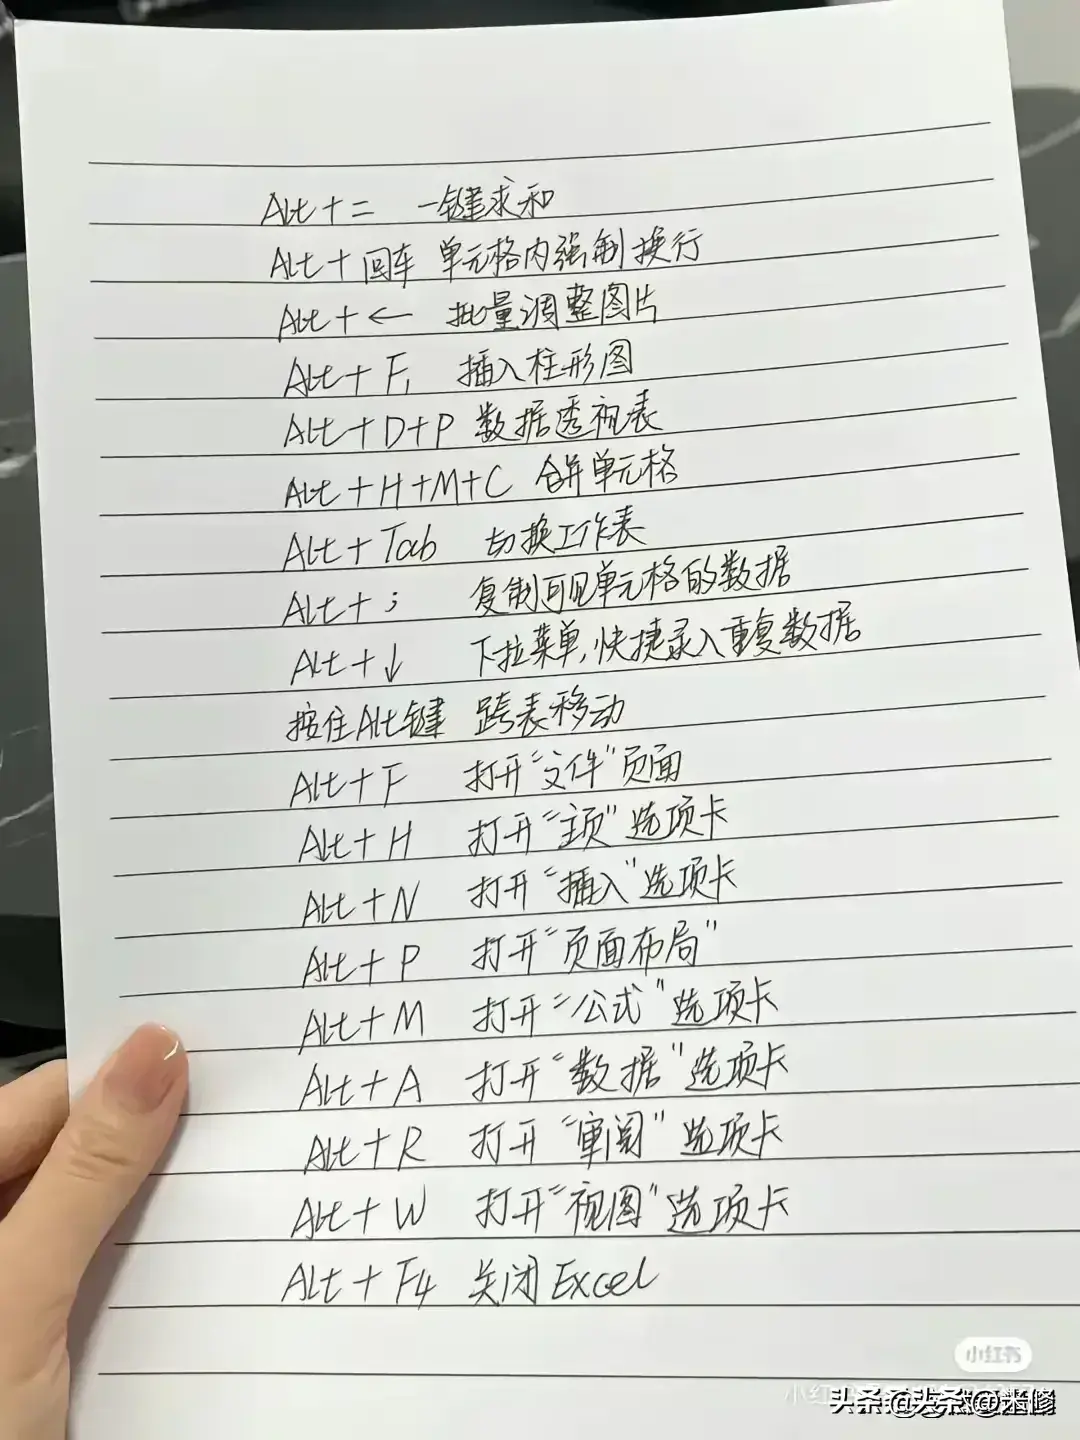 Alt+= 一键求和
Alt+回车 单元格内强制换行
Alt+← 批量调整图片
Alt+F1 插入柱形图
Alt+D+P 数据透视表
Alt+H+M+C 合并单元格
Alt+Tab 切换工作表
Alt+; 复制可见单元格的数据
Alt+↓ 下拉菜单,快捷录入重复数据
按住Alt键 跨表移动
Alt+F 打开“文件”页面
Alt+H 打开“主页”选项卡
Alt+N 打开“插入”选项卡
Alt+P 打开“页面布局”
Alt+M 打开“公式”选项卡
Alt+A 打开“数据”选项卡
Alt+R 打开“审阅”选项卡
Alt+W 打开“视图”选项卡
Alt+F4 关闭Excel
小红书